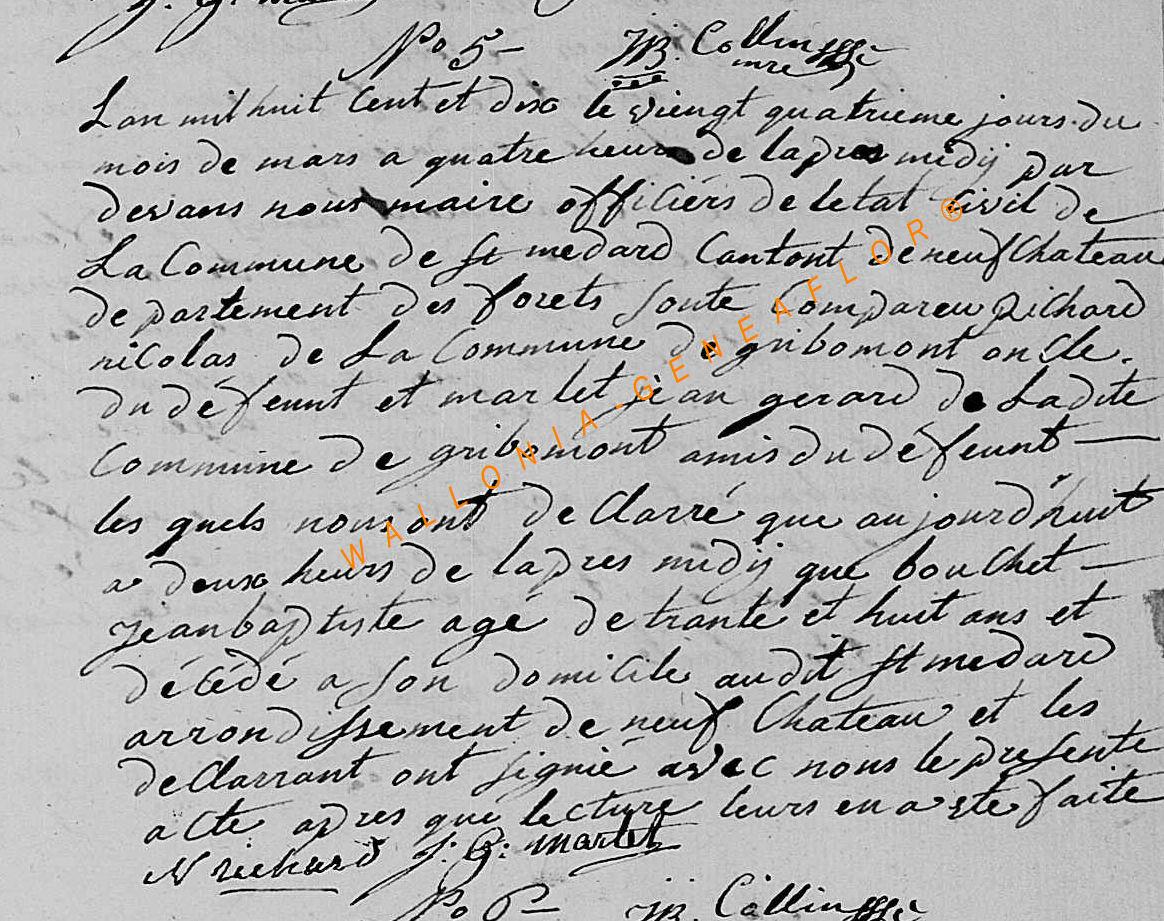 No 5 - JB. Collin
mre
Lan mil huit Cent et dix le viengt quatrieme jours du
mois de mars a quatre heurs de lapres midij par
devans nous maire officiérs de letat Civil de
La Commune de St medard Cantont de neufChateau
departement des forets sont Compareu Richard
nicolas de La Commune de gribomont oncle
du défeunt et marlet jean gerard de Ladite
Commune de gribomont amis du défeunt —
les quels nous ont declarré que aujourdhuit
a deux heurs de lapres midij que bouchet —
jean baptiste agé de trante et huit ans et
décédé a son domicile audit St medard
arrondissement de neuf Chateau et les
declarrant ont signié avec nous le presente
acte apres que lecture leurs en a ete faite
N richard J: G: marlet
No 6 - JB. Collin
WALLONIA-GENEAFLOR®